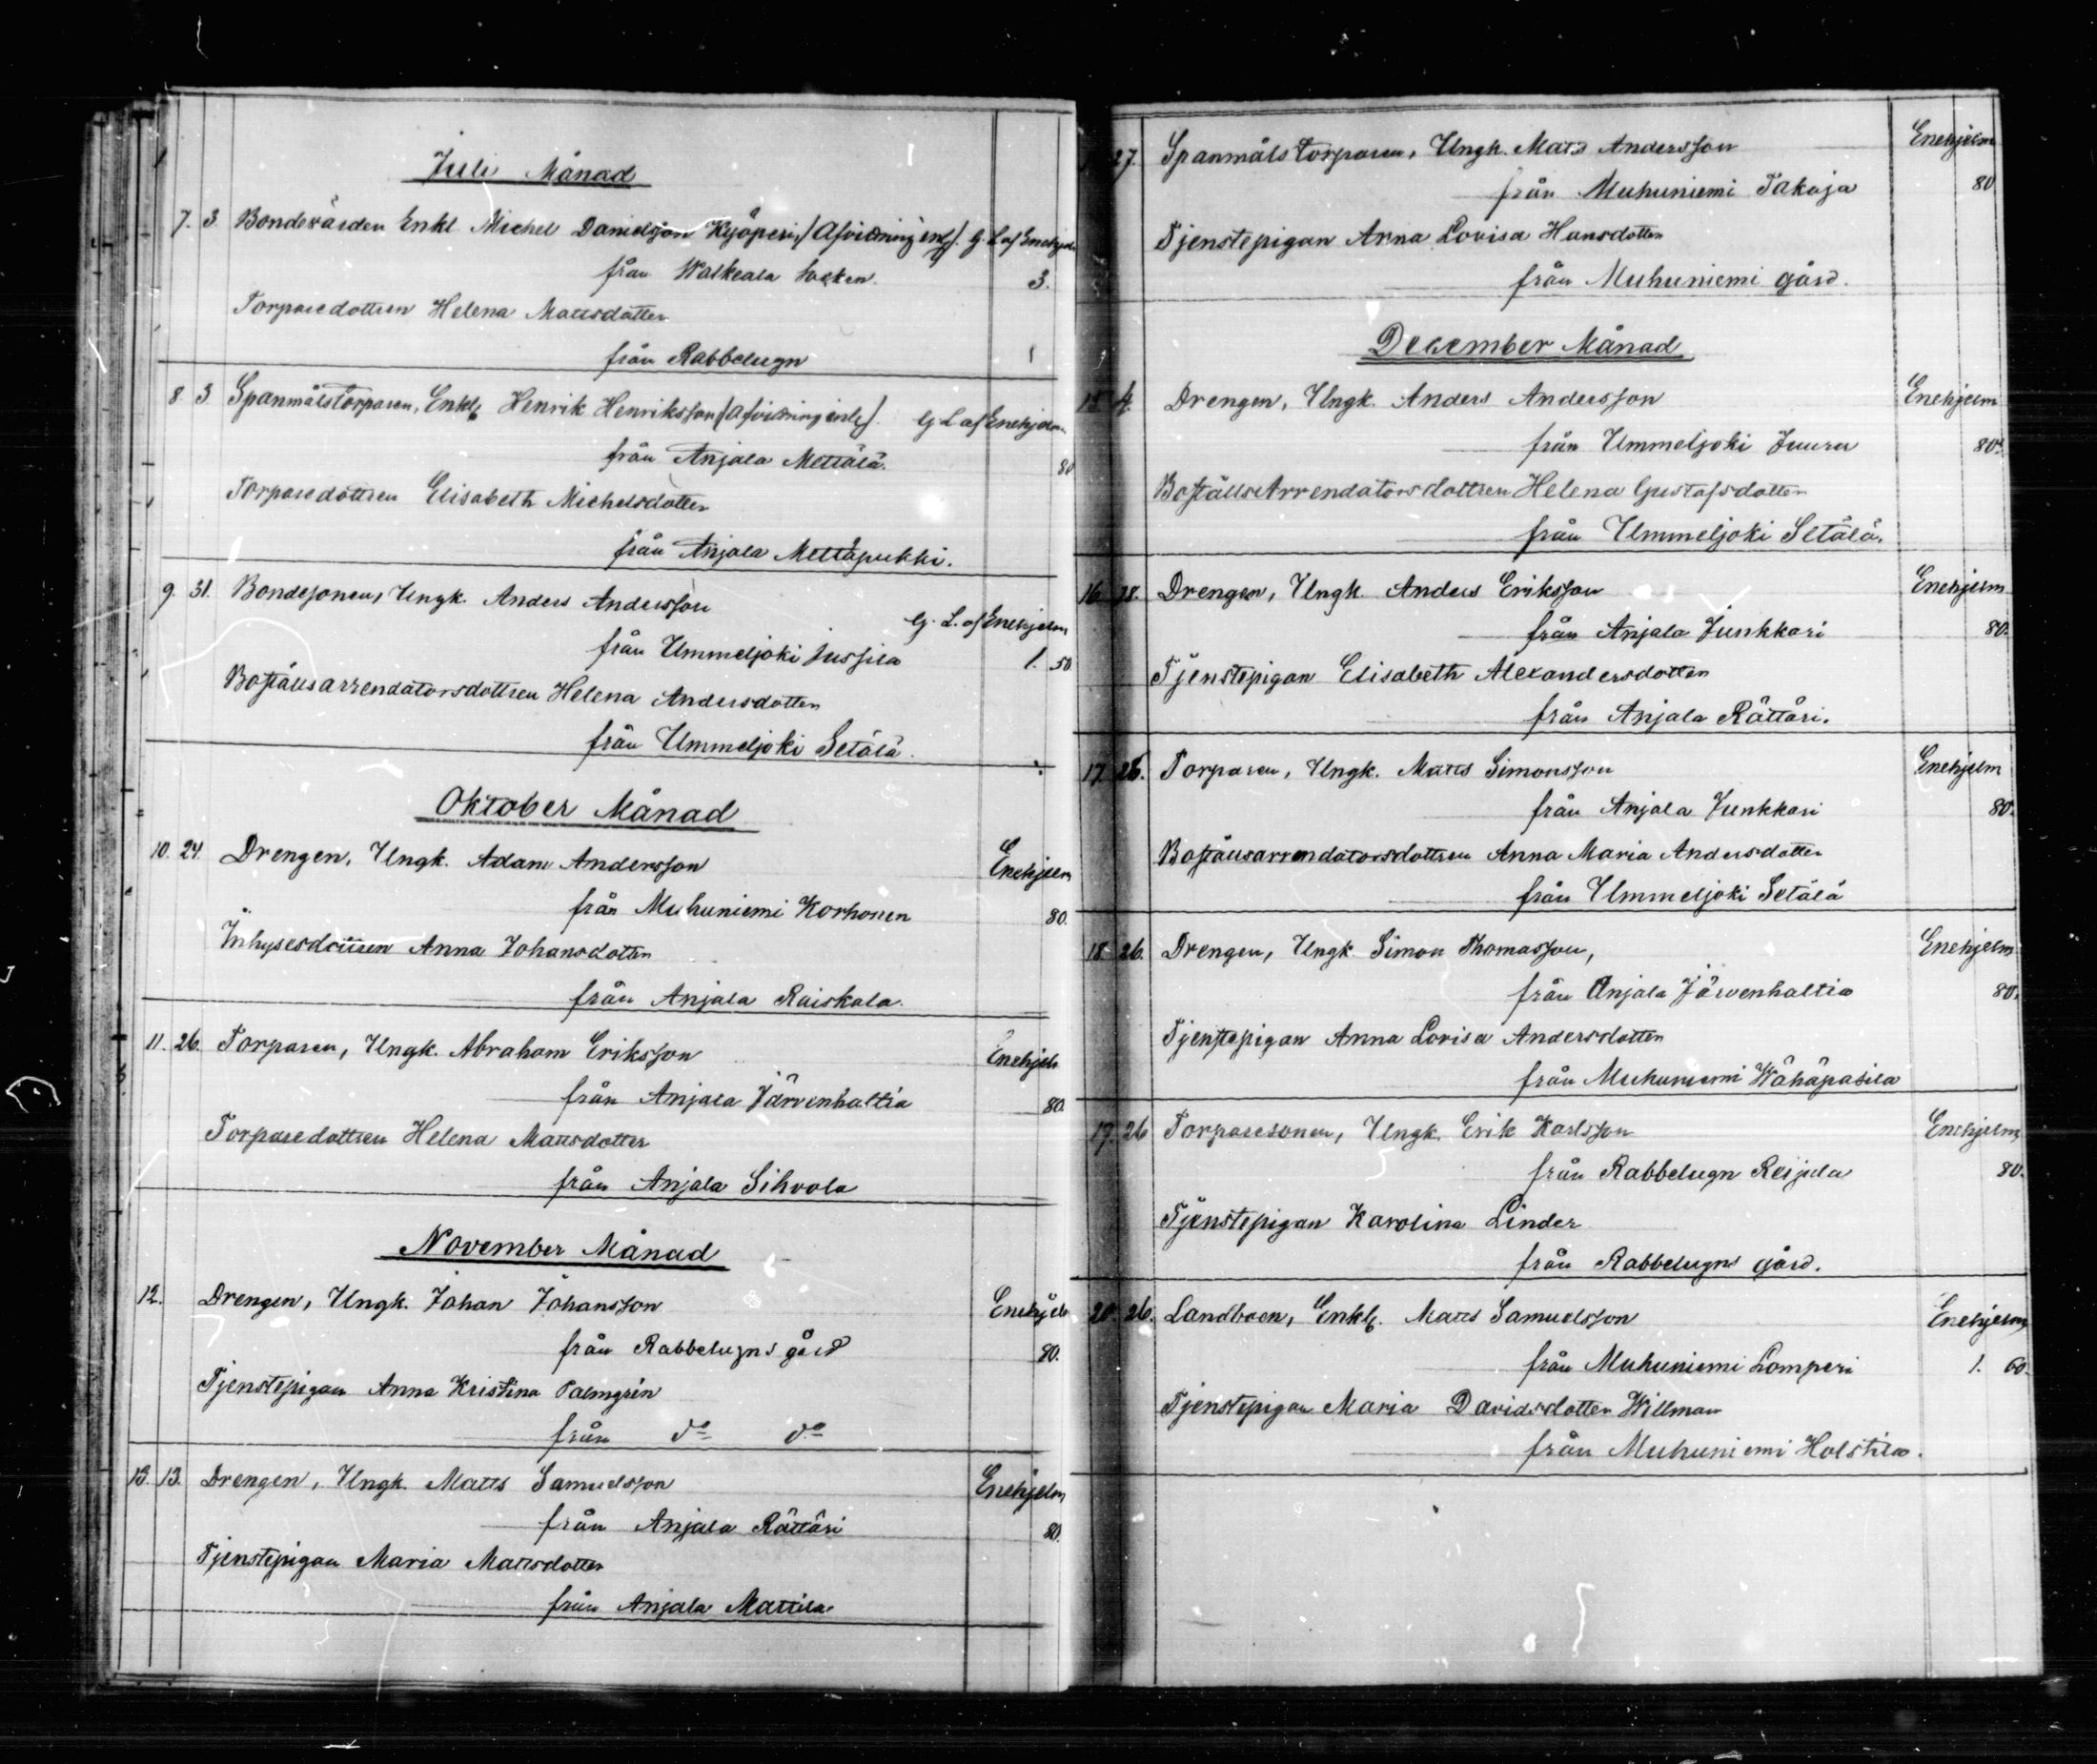 Juli Månad
7. 3 Bondevärden Enkl Michel Danielsson Kyöperi, /Afvidning inl/. G. L af Enehjelm
från Walkeala Socken. 3.
Torparedottren Helena Mattsdotter
från Rabbelugn
8. 3 Spanmålstorparen, Enkl. Henrik Henriksson /Afvidning inl/. G. L af Enehjelm
från Anjala Mettälä. 80
Torparedottren Elisabeth Michelsdotter
från Anjala Mettäpukki.
9. 31. Bondesonen, Ungk. Anders Andersson G. L. af Enehjelm
från Ummeljoki Jussila 1. 50
Boställsarrendatorsdottren Helena Andersdotter
från Ummeljoki Setälä.
Oktober Månad
10. 24. Drengen, Ungk. Adam Andersson Enehjelm
från Muhuniemi Korhonen 80.
Inhysesdottren Anna Johansdotter
från Anjala Raiskala.
11. 26. Torparen, Ungk. Abraham Eriksson Enehjelm
från Anjala Järvenhaltia 80.
Torparedottren Helena Mattsdotter
från Anjala Sihvola
November Månad
12. Drengen, Ungk. Johan Johansson Enehjelm
från Rabbelugns gård 80.
Tjenstepigan Anna Kristina Palmgrén
från do do
13. 13. Drengen, Ungk. Matts Samuelsson Enehjelm
från Anjala Rättäri 80.
Tjenstepigan Maria Mattsdotter
från Anjala Mattila
27. Spanmåls torparen, Ungk. Mats Andersson Enehjelm
från Muhuniemi Takaja 80
Tjenstepigan Anna Lovisa Hansdotter
från Muhuniemi gård.
December Månad
15 4. Drengen, Ungk. Anders Andersson Enehjelm
från Ummeljoki Juuru 80.
BoställsArrendatorsdottren Helena Gustafsdotter
från Ummeljoki Setälä.
16 18. Drengen, Ungk. Anders Eriksson Enehjelm
från Anjala Junkkari 80.
Tjenstepigan Elisabeth Alexandersdotter
från Anjala Rättäri.
17 26. Torparen, Ungk. Matts Simonsson Enehjelm
från Anjala Junkkari 80.
Boställsarrendatorsdottren Anna Maria Andersdotter
från Ummeljoki Setälä
18 26. Drengen, Ungk. Simon Thomasson, Enehjelm
från Anjala Järvenhaltia 80.
Tjenstepigan Anna Lovisa Andersdotter
från Muhuniemi Wähäpasila
19. 26 Torparesonen, Ungk. Erik Karlsson Enehjelm
från Rabbelugn Reijula 80.
Tjenstepigan Karolina Linder
från Rabbelugns gård.
20. 26. Landboen, Enkl. Matts Samuelsson Enehjelm
från Muhuniemi Lomperi 1. 60.
Tjenstepigan Maria Davidsdotter Willman
från Muhuniemi Holstila.